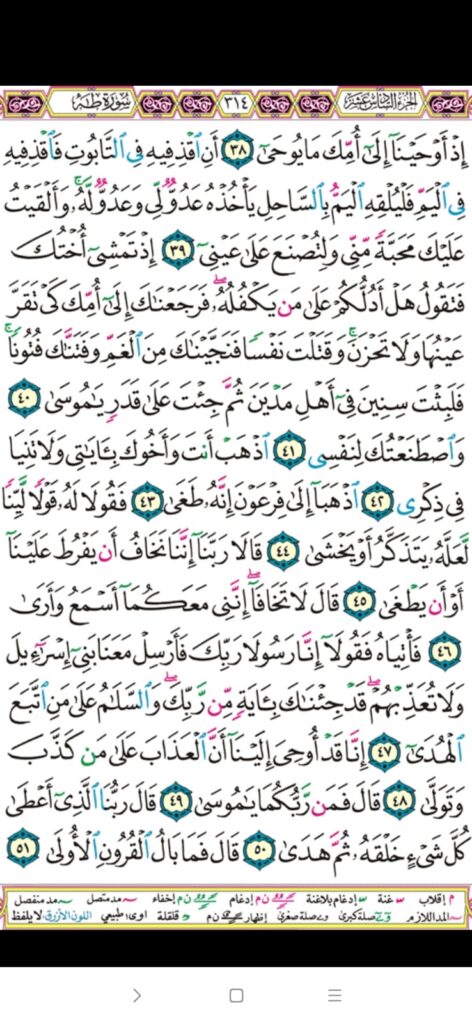 الجزء السادس عشر ٣١٤ سورة طه
إِذْ أَوْحَيْنَآ إِلَىٰٓ أُمِّكَ مَا يُوحَىٰٓ ٣٨ أَنِ ٱقْذِفِيهِ فِى ٱلتَّابُوتِ فَٱقْذِفِيهِ
فِى ٱلْيَمِّ فَلْيُلْقِهِ ٱلْيَمُّ بِٱلسَّاحِلِ يَأْخُذْهُ عَدُوٌّ لِّى وَعَدُوٌّ لَّهُۥ ۚ وَأَلْقَيْتُ
عَلَيْكَ مَحَبَّةً مِّنِّى وَلِتُصْنَعَ عَلَىٰ عَيْنِىٓ ٣٩ إِذْ تَمْشِىٓ أُخْتُكَ
فَتَقُولُ هَلْ أَدُلُّكُمْ عَلَىٰ مَن يَكْفُلُهُۥ ۖ فَرَجَعْنَـٰكَ إِلَىٰٓ أُمِّكَ كَىْ تَقَرَّ
عَيْنُهَا وَلَا تَحْزَنَ ۚ وَقَتَلْتَ نَفْسًا فَنَجَّيْنَـٰكَ مِنَ ٱلْغَمِّ وَفَتَنَّـٰكَ فُتُونًا ۚ
فَلَبِثْتَ سِنِينَ فِىٓ أَهْلِ مَدْيَنَ ثُمَّ جِئْتَ عَلَىٰ قَدَرٍ يَـٰمُوسَىٰ ٤٠
وَٱصْطَنَعْتُكَ لِنَفْسِى ٤١ ٱذْهَبْ أَنتَ وَأَخُوكَ بِـَٔايَـٰتِى وَلَا تَنِيَا
فِى ذِكْرِى ٤٢ ٱذْهَبَآ إِلَىٰ فِرْعَوْنَ إِنَّهُۥ طَغَىٰ ٤٣ فَقُولَا لَهُۥ قَوْلًا لَّيِّنًا
لَّعَلَّهُۥ يَتَذَكَّرُ أَوْ يَخْشَىٰ ٤٤ قَالَا رَبَّنَآ إِنَّنَا نَخَافُ أَن يَفْرُطَ عَلَيْنَآ
أَوْ أَن يَطْغَىٰ ٤٥ قَالَ لَا تَخَافَآ ۖ إِنَّنِى مَعَكُمَآ أَسْمَعُ وَأَرَىٰ
٤٦ فَأْتِيَاهُ فَقُولَآ إِنَّا رَسُولَا رَبِّكَ فَأَرْسِلْ مَعَنَا بَنِىٓ إِسْرَٰٓءِيلَ
وَلَا تُعَذِّبْهُمْ ۖ قَدْ جِئْنَـٰكَ بِـَٔايَةٍ مِّن رَّبِّكَ ۖ وَٱلسَّلَـٰمُ عَلَىٰ مَنِ ٱتَّبَعَ
ٱلْهُدَىٰٓ ٤٧ إِنَّا قَدْ أُوحِىَ إِلَيْنَآ أَنَّ ٱلْعَذَابَ عَلَىٰ مَن كَذَّبَ
وَتَوَلَّىٰ ٤٨ قَالَ فَمَن رَّبُّكُمَا يَـٰمُوسَىٰ ٤٩ قَالَ رَبُّنَا ٱلَّذِىٓ أَعْطَىٰ
كُلَّ شَىْءٍ خَلْقَهُۥ ثُمَّ هَدَىٰ ٥٠ قَالَ فَمَا بَالُ ٱلْقُرُونِ ٱلْأُولَىٰ ٥١
م إقلاب غنة إدغام بلاغنة ن م إدغام ن م إخفاء مد متصل مد منفصل
المد اللازم صلة كبرى صلة صغرى إظهار ن م قلقلة طبيعي اللون الأزرق لا يلفظ